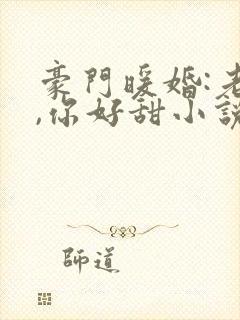 豪門暖婚:老
,你好甜小說
師道